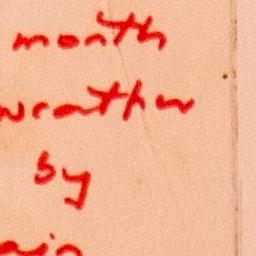 month
weather
by